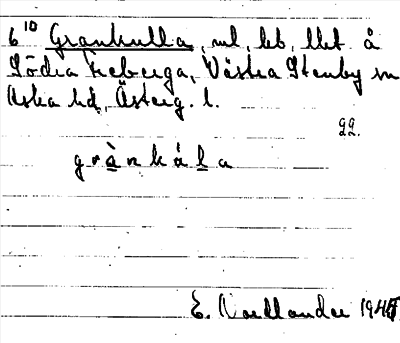 6¹⁰ Grankulla, ml, beb, lht å
Södra Freberga, Västra Stenby sn
Aska hd, Österg. l.
gg.
grànkála
E. Nordlander 1945